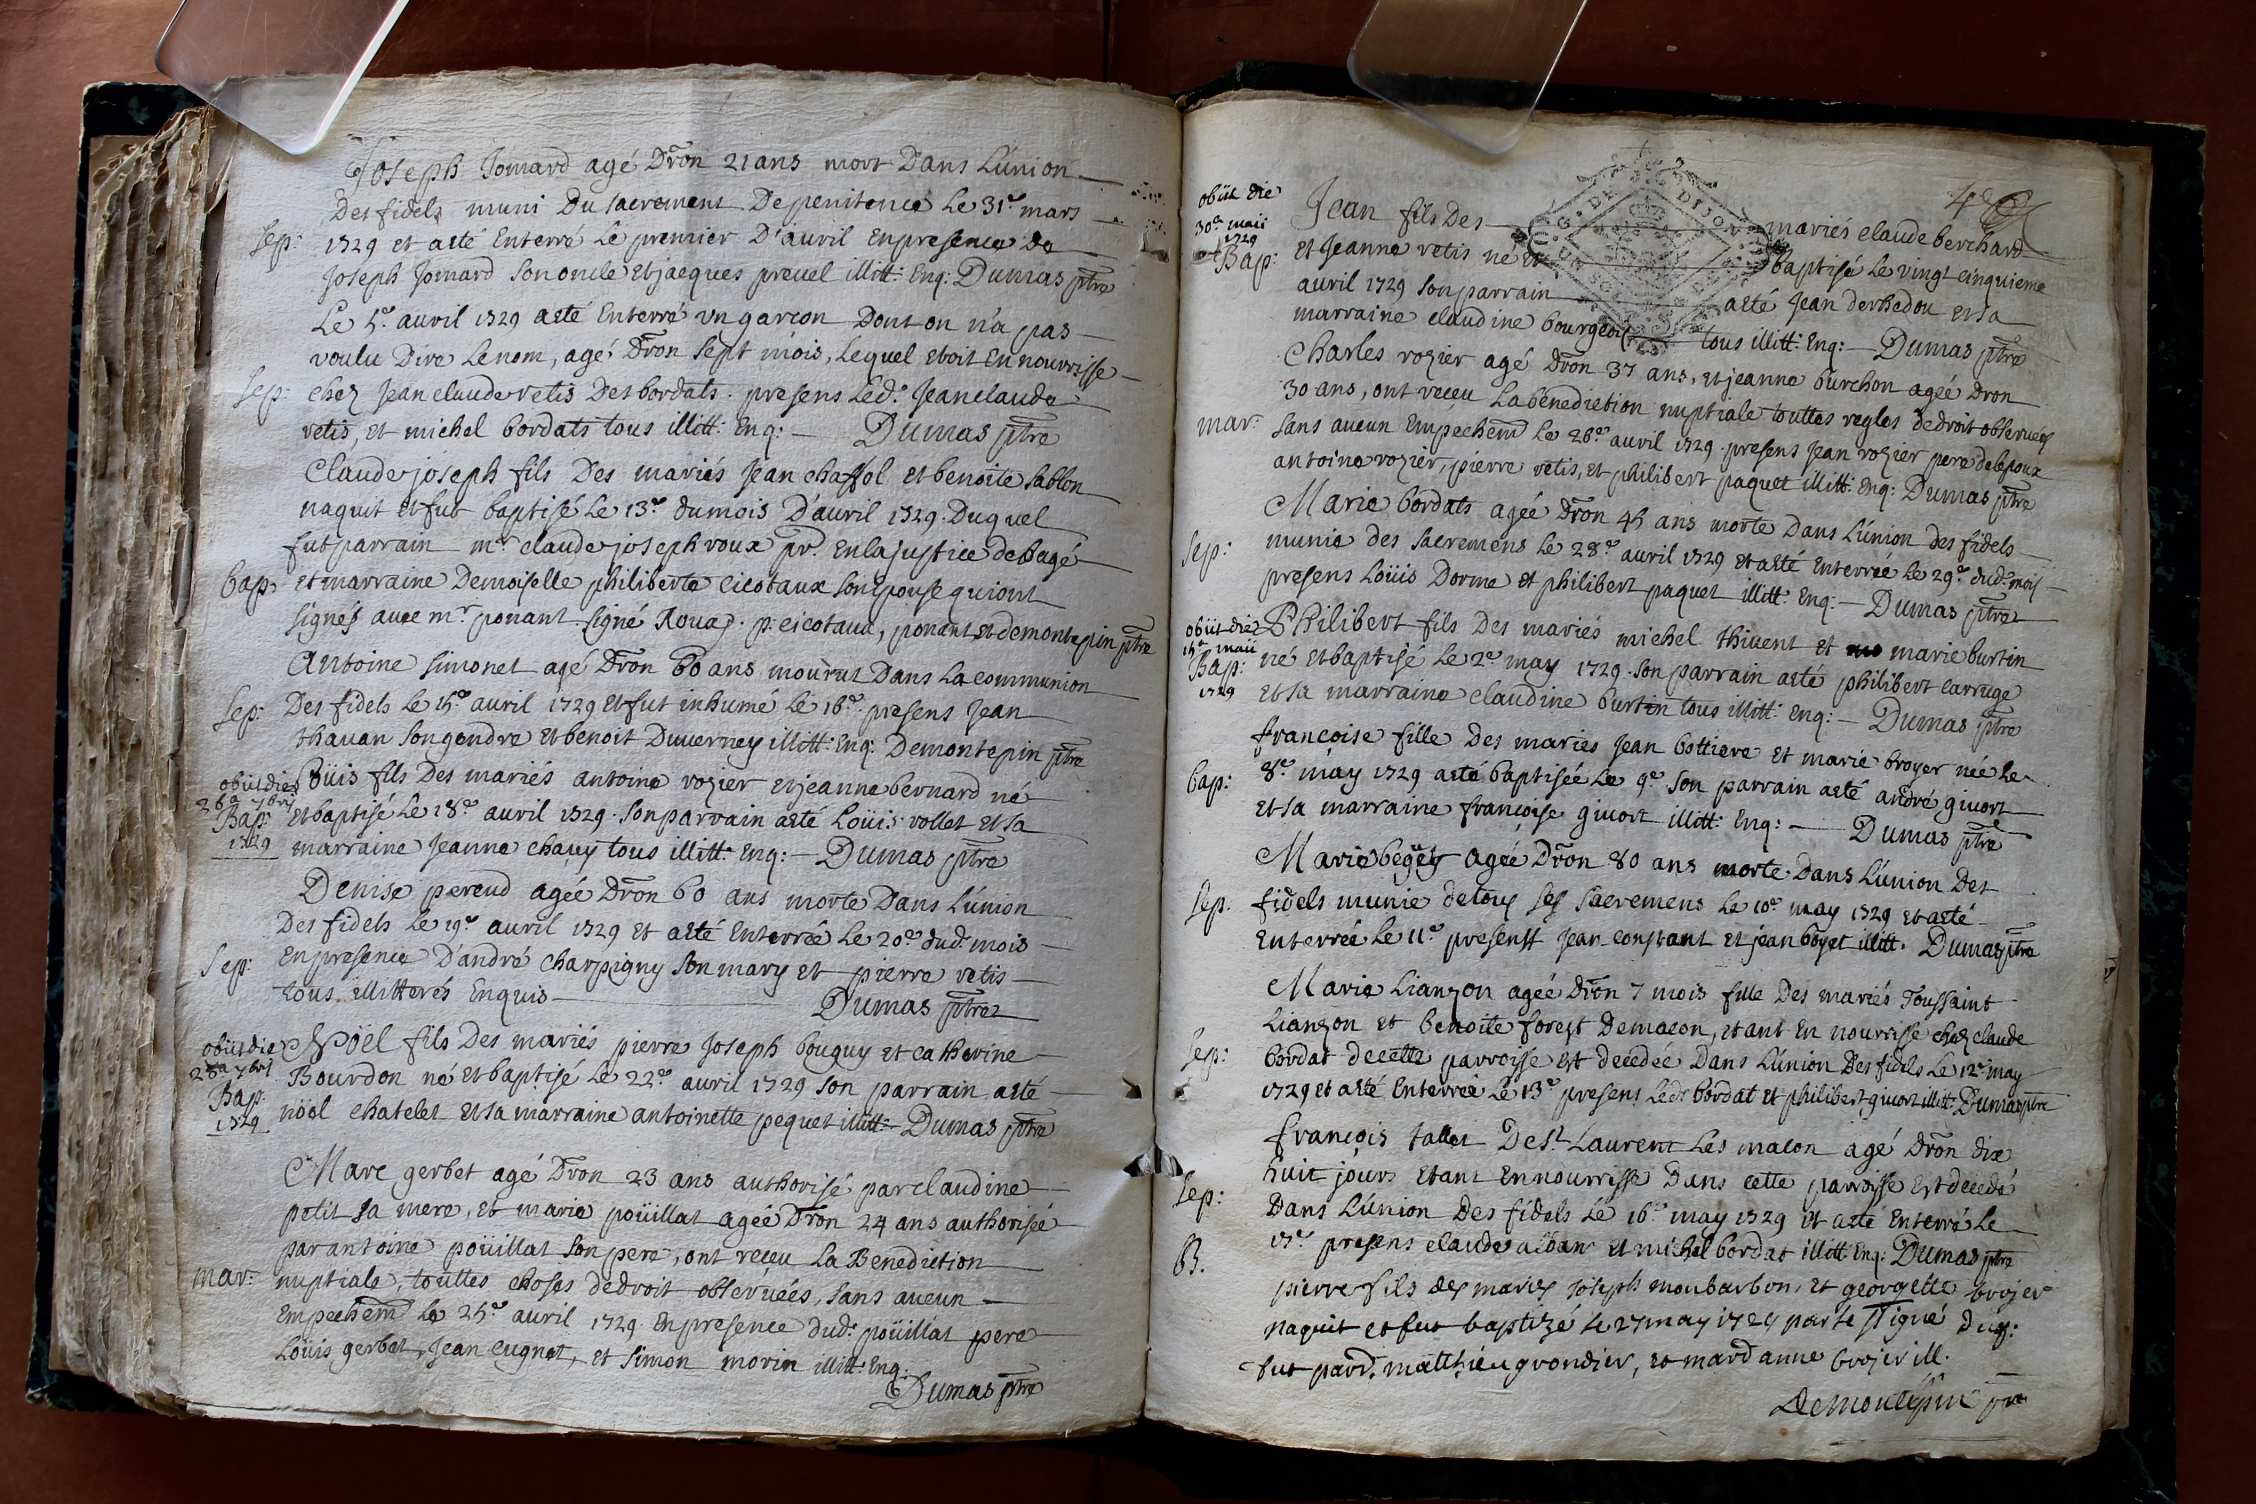 Joseph Jomard agé Dron 21 ans mort Dans L'union
Des fidels muni Du sacrement De penitence Le 31e mars
Sep: 1729 et aeté Enterré Le premier D'avril En presence de
Joseph Jomard son oncle et jacques prevel illitt: Enq: Dumas ptre
Le 5e avril 1729 aeté Enterré un garcon Dont on n'a pas
voulu Dire Le nom, agé Dron sept mois, Lequel etoit En nourrisse
Sep: chez Jean claude vetis Des bordats. presens Led. Jean claude
vetis, et michel bordats tous illitt: Enq: Dumas ptre
Claude joseph fils Des mariés Jean chaffol et benoite sablon
naquit et fut baptisé Le 13e du mois D'avril 1729. Duquel
fut parrain mr claude joseph roux pr. En la justice de bagé
bap: et marraine Demoiselle philiberte cicotaux son epouse qui ont
signés avec mr ponant. signé Roux. p: cicotaud, ponant et demontepin ptre
Antoine simonet agé Dron 60 ans mourut Dans La communion
Sep: Des fidels Le 15e avril 1729 et fut inhumé Le 16e presens Jean
thavan son gendre et benoit Duverney illitt: Enq: Demontepin ptre
obiit die 26a 7bris Bap: 1729
Loüis fils Des mariés antoine rozier et jeanne bernard né
et baptisé Le 18e avril 1729. son parrain aeté Loüis vollet et sa
marraine Jeanne chauy tous illitt: Enq: Dumas ptre
Denise perend agée Dron 60 ans morte Dans L'union
Des fidels Le 19e avril 1729 et aeté Enterrée Le 20e dud. mois
Sep: En presence D'andré charpigny son mary et pierre vetis
tous illitterés Enquis Dumas ptre
obiit die 28a 7bris Bap: 1729
Noël fils Des mariés pierre Joseph bouguy et catherine
Bourdon né et baptisé Le 22e avril 1729 son parrain aeté
nöel chatelet et sa marraine antoinette pequet illitt: Dumas ptre
Marc gerbet agé Dron 23 ans authorisé par claudine
petit sa mere, et marie poüillat agée Dron 24 ans authorisée
par antoine poüillat son pere, ont receu La Benediction
mar: nuptiale, touttes choses de droit observées, sans aucun
Empechemt Le 25e avril 1729. En presence dud. poüillat pere
Loüis gerbet, Jean cugnet, et simon morin illitt: Enq:
Dumas ptre
obiit die 30a maii 1729 Bap:
Jean fils Des mariés claude berchard
et Jeanne vetis né et baptisé Le vingt cinquieme
avril 1729 son parrain aeté Jean derhedou et sa
marraine claudine bourgeois tous illitt: Enq: Dumas ptre
Charles rozier agé Dron 37 ans, et jeanne burchon agée Dron
30 ans, ont receu La benediction nuptiale touttes regles de droit observées
mar: sans aucun Empechemt Le 26e avril 1729. presens Jean rozier pere de lepoux
antoine rozier, pierre vetis, et philibert paquet illitt: Enq: Dumas ptre
Marie bordats agée Dron 45 ans morte Dans L'union des fidels
Sep: munie des sacremens Le 28e avril 1729 et aeté Enterrée Le 29e dud. mois
presens Loüis Dorme et philibert paquet illitt: Enq: Dumas ptre
obiit die 15a maii Bap: 1729
Philibert fils Des mariés michel thivent et marie burtin
né et baptisé Le 2e may 1729. son parrain aeté philibert carruge
et sa marraine claudine burtin tous illitt: Enq: Dumas ptre
francoise fille Des mariés Jean bottiere et marie broyer née Le
bap: 8e may 1729 aeté baptisée Le 9e son parrain aeté andré givort
et sa marraine francoise givort illitt: Enq: Dumas ptre
Marie béguy agée Dron 80 ans morte Dans L'union Des
Sep. fidels munie de tous ses sacremens Le 10e may 1729 et aeté
Enterrée Le 11e presens Jean constant et jean boyet illitt. Dumas ptre
Marie Lianzon agée Dron 7 mois fille Des mariés Toussaint
Lianzon et benoite forest De macon, etant En nourrisse chez claude
Sep: bordat de cette parroisse est decedée Dans L'union Des fidels Le 12e may
1729 et aeté Enterrée Le 13e presens Led. bordat et philibert givort illitt: Dumas ptre
françois tallet De St Laurent Les macon agé Dron dix
huit jours etant En nourrisse Dans cette parroisse est decedé
Sep: Dans L'union Des fidels Le 16e may 1729 et aeté Enterré Le
17e presens claude alban et michel bordat illitt: Enq: Dumas ptre
B. pierre fils des mariés joseph monbarbon, et georgette brojer
naquit et fut baptizé le 27 may 1729 par le ssigné Duq:
fut pard. matthieu grondier, et mard anne brojer ill.
Demontepin ptre